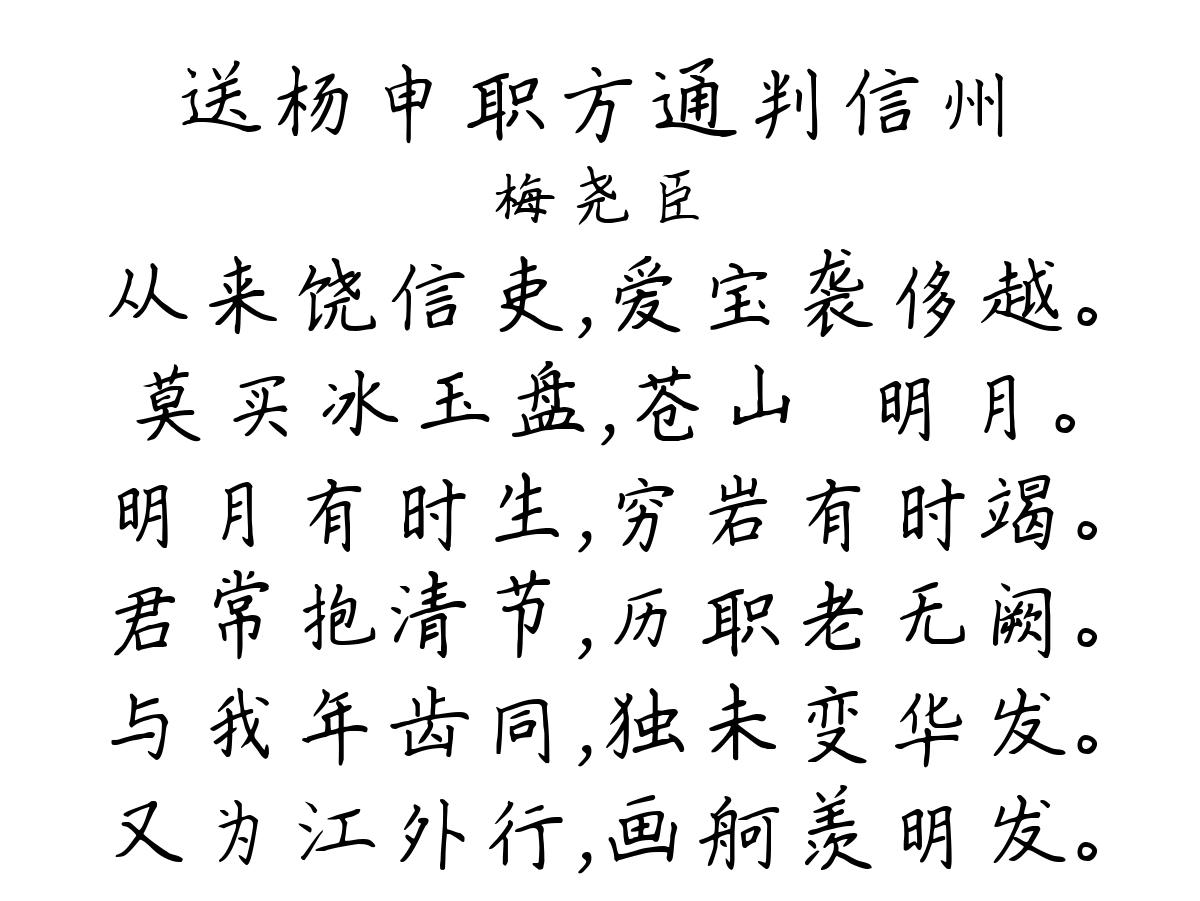 送杨申职方通判信州
梅尧臣
从来饶信吏,爱宝袭侈越。
莫买冰玉盘,苍山 明月。
明月有时生,穷岩有时竭。
君常抱清节,历职老无阙。
与我年齿同,独未变华发。
又为江外行,画舸羡明发。